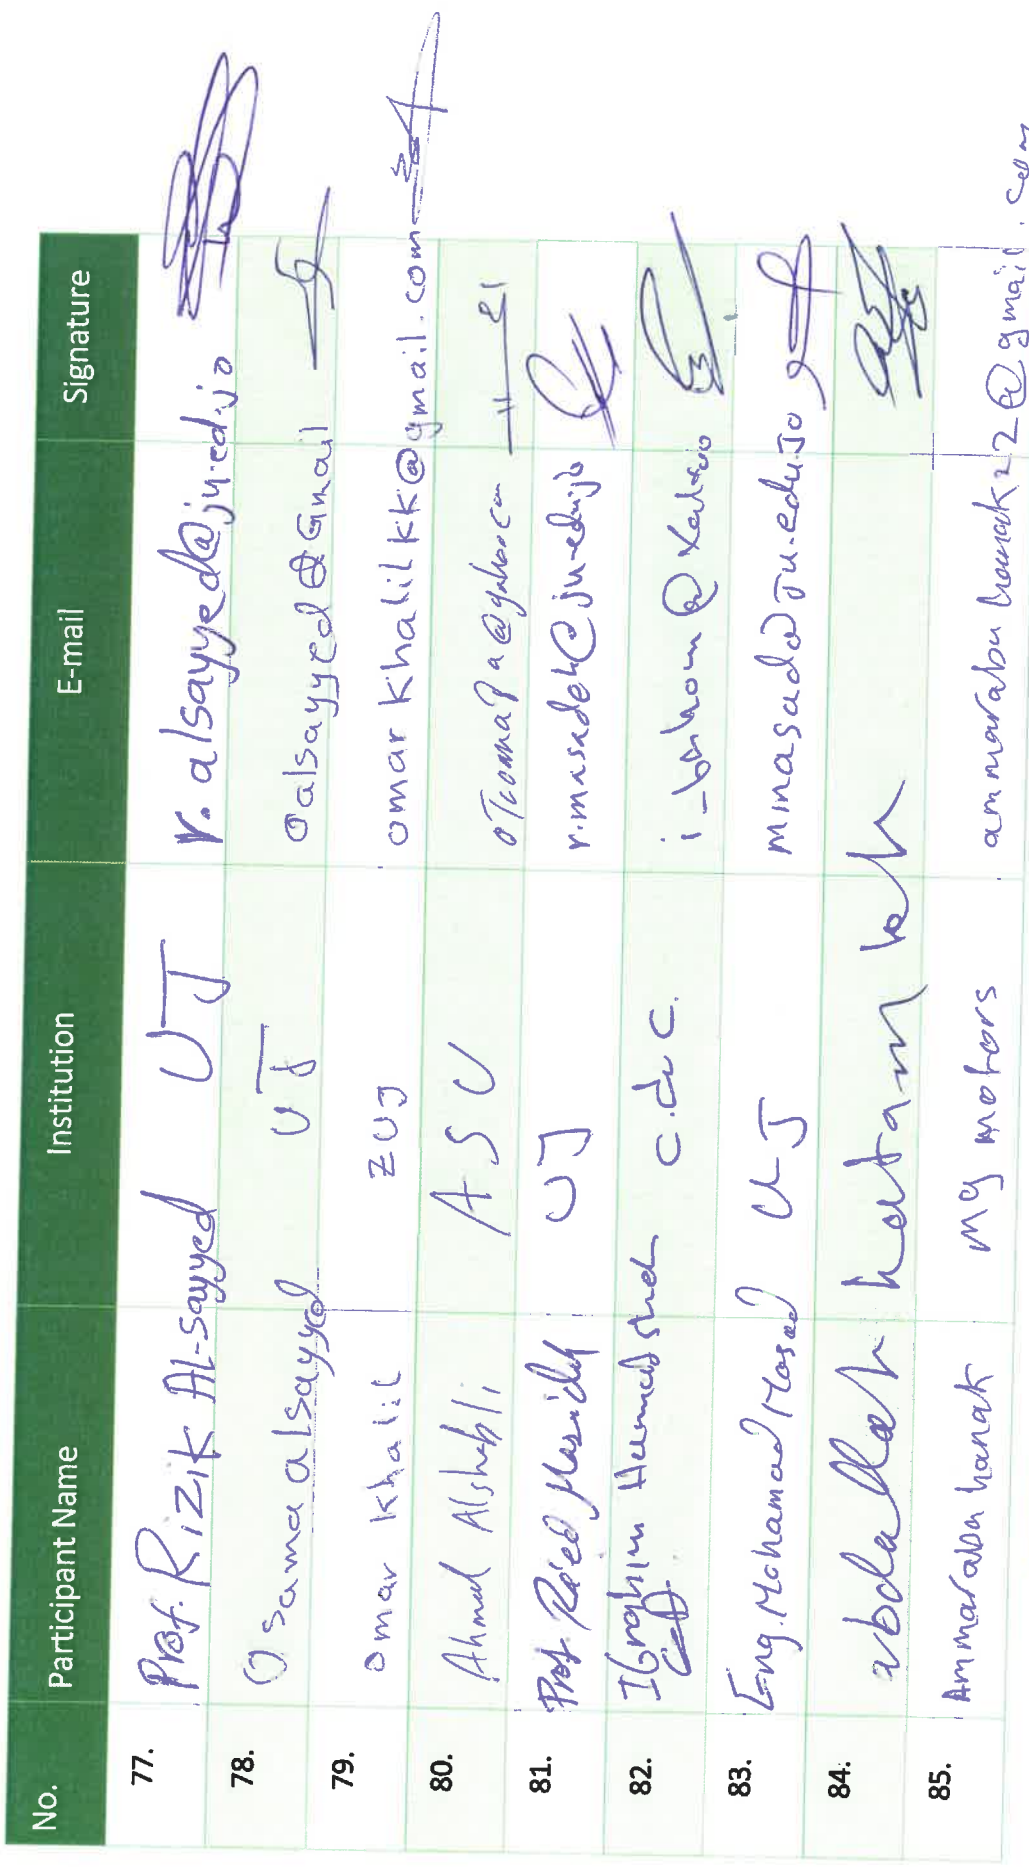 No. Participant Name Institution E-mail Signature
77. Prof. Rizik AL-sayyed UJ r.alsayyed@ju.ed.jo
78. Osama alsayyed UJ oalsayyed@Gmail
79. omar khalil ZUJ omarkhalilkk@gmail.com
80. Ahmad Alshebli ASU
81. Prof. Ra'ed Masa'deh UJ r.masadeh@ju.edu.jo
82. Ibrahim
83. Eng. Mohamad Mosad UJ minasad@JU.edu.Jo
84. abdallah hatamleh
85. Ammarabu hanak mg motors ammarabuhanak22@gmail.com